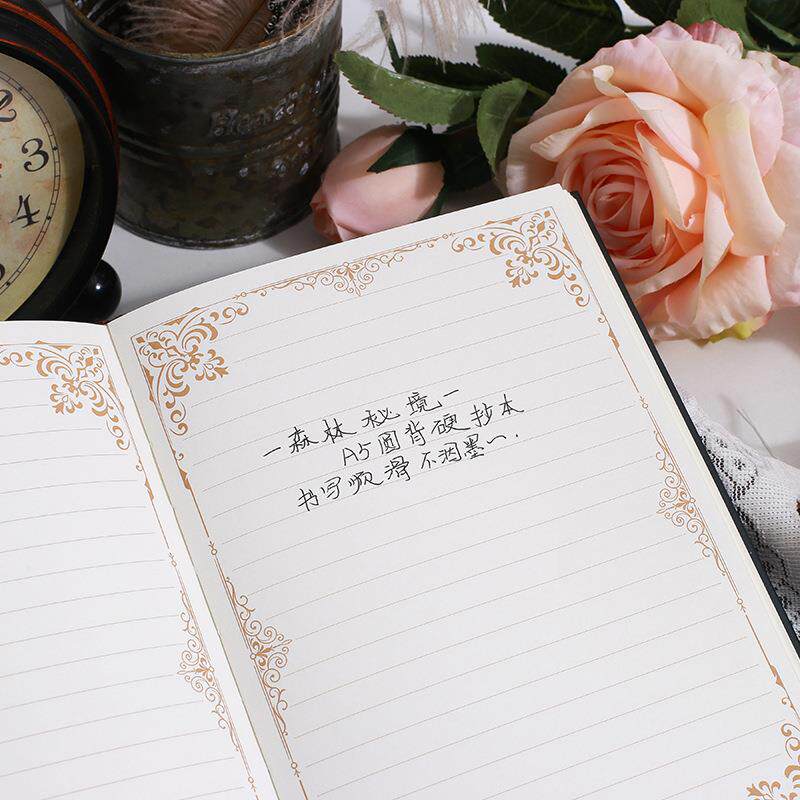 一森林秘境一
A5圆背硬抄本
书写顺滑不洇墨～.
2
3
4